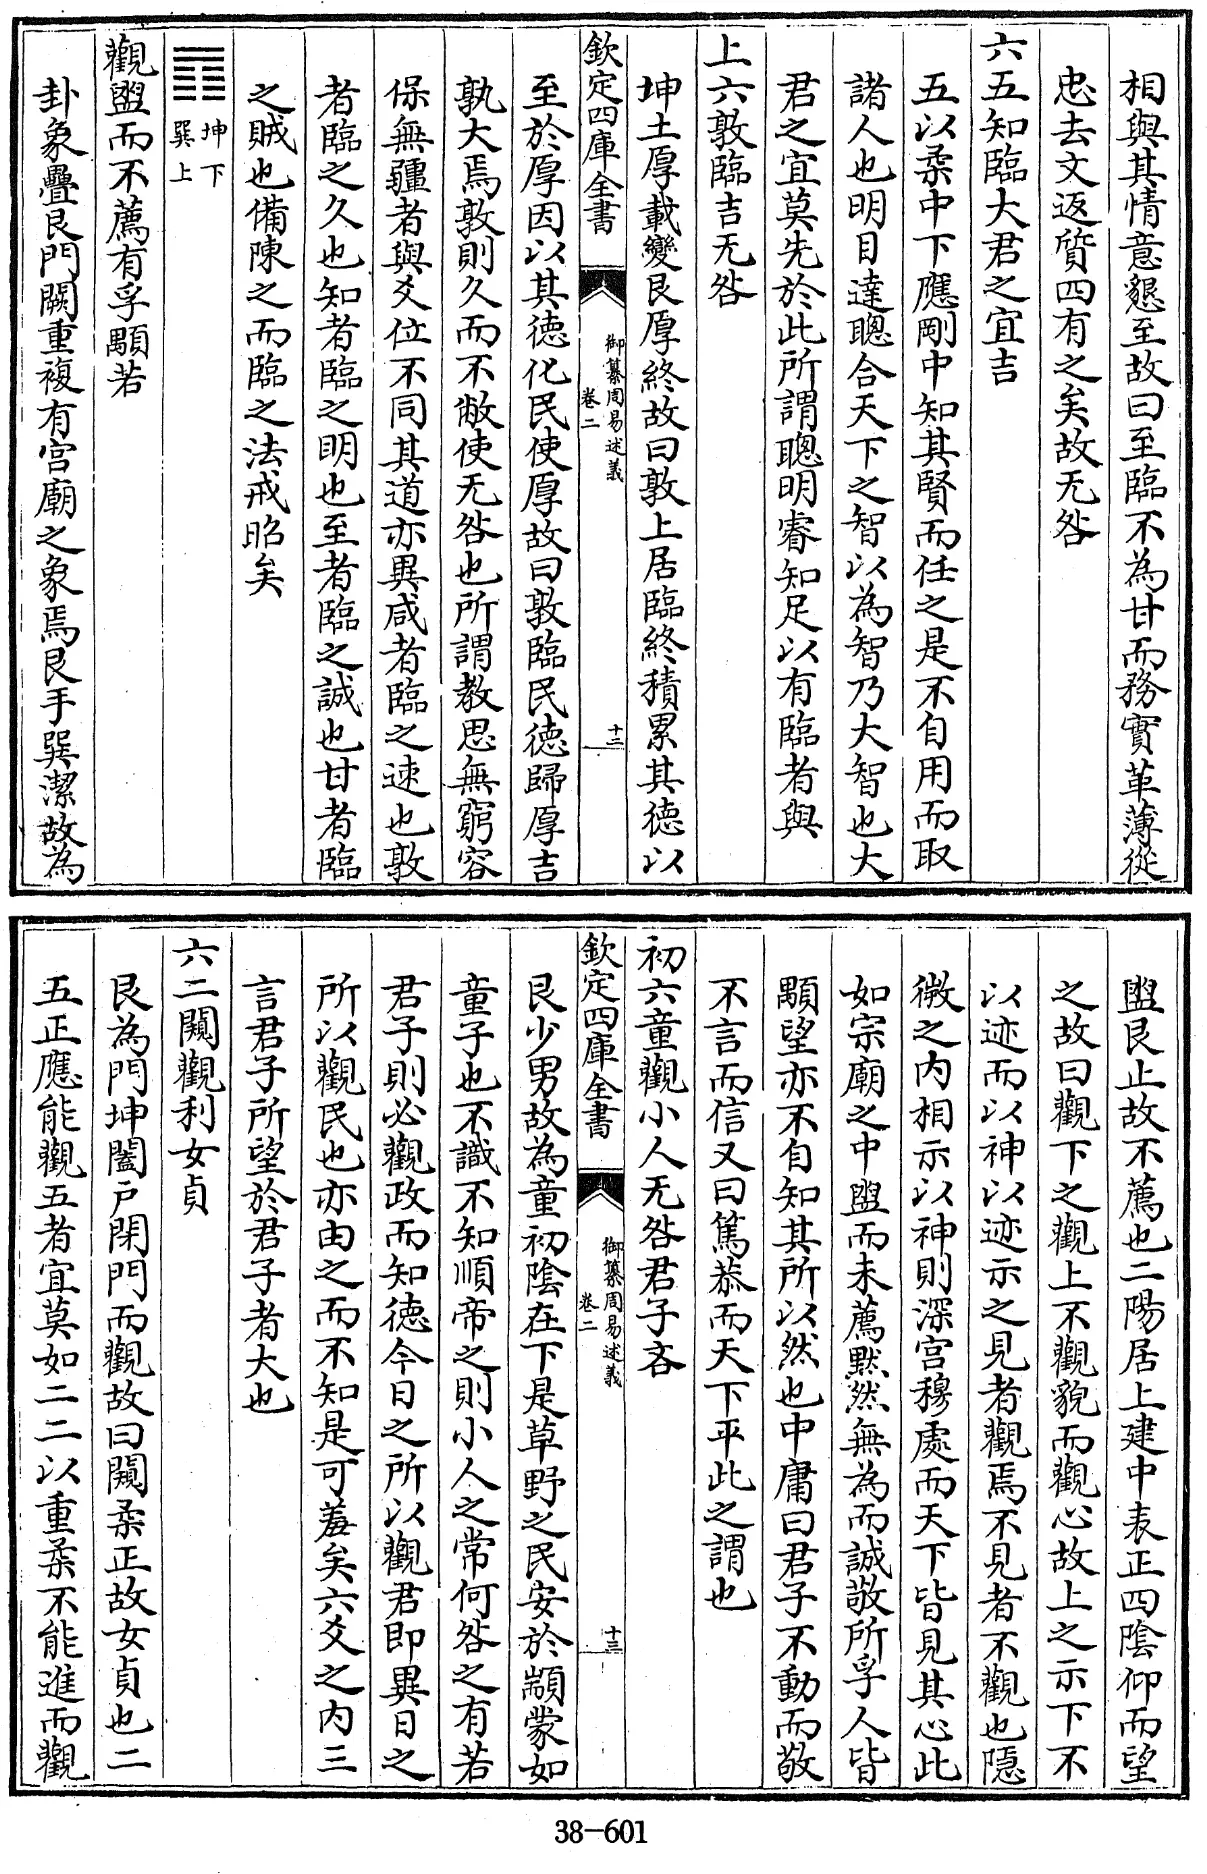 相與其情意懇至故曰至臨不為甘而務實革薄從
忠去文返質四有之矣故无咎
六五知臨大君之宜吉
五以柔中下應剛中知其賢而任之是不自用而取
諸人也明目達聰合天下之智以為智乃大智也大
君之宜莫先於此所謂聰明睿知足以有臨者與
上六敦臨吉无咎
坤土厚載變艮厚終故曰敦上居臨終積累其德以
欽定四庫全書
御纂周易述義
卷二
十二
至於厚因以其德化民使厚故曰敦臨民德歸厚吉
孰大焉敦則久而不敝使无咎也所謂教思無窮容
保無疆者與爻位不同其道亦異咸者臨之速也敦
者臨之久也知者臨之明也至者臨之誠也甘者臨
之賊也備陳之而臨之法戒昭矣
坤下
巽上
觀盥而不薦有孚顒若
卦象疊艮門闕重複有宫廟之象焉艮手巽潔故為
盥艮止故不薦也二陽居上建中表正四陰仰而望
之故曰觀下之觀上不觀貌而觀心故上之示下不
以迹而以神以迹示之見者觀焉不見者不觀也隱
微之内相示以神則深宫穆處而天下皆見其心此
如宗廟之中盥而未薦默然無為而誠敬所孚人皆
顒望亦不自知其所以然也中庸曰君子不動而敬
不言而信又曰篤恭而天下平此之謂也
初六童觀小人无咎君子吝
欽定四庫全書
御纂周易述義
卷二
十三
艮少男故為童初陰在下是草野之民安於顓蒙如
童子也不識不知順帝之則小人之常何咎之有若
君子則必觀政而知德今日之所以觀君即異日之
所以觀民也亦由之而不知是可羞矣六爻之内三
言君子所望於君子者大也
六二闚觀利女貞
艮為門坤闔户閉門而觀故曰闚柔正故女貞也二
五正應能觀五者宜莫如二二以重柔不能進而觀
38-601